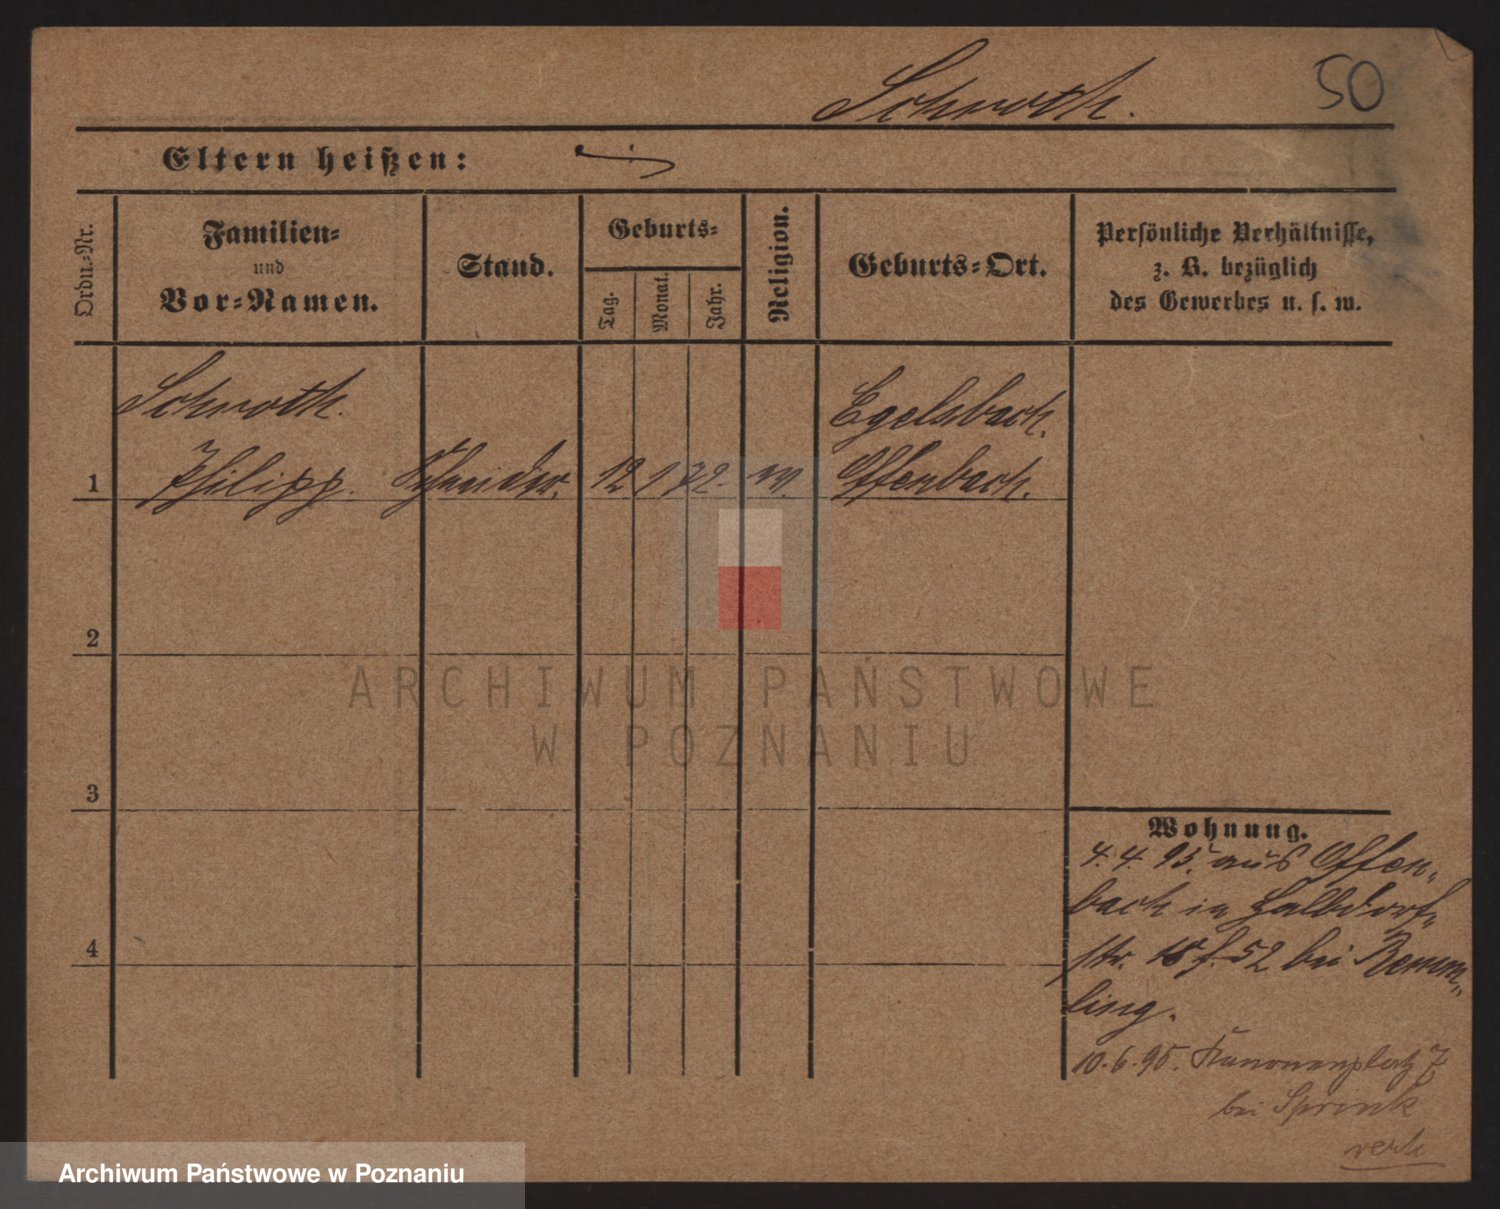 Schroth.
50
Eltern heißen:
Ordn.-Nr.
Familien-
und
Vor-Namen.
Stand.
Geburts-
Tag.
Monat.
Jahr.
Religion.
Geburts-Ort.
Persönliche Verhältnisse,
z. B. bezüglich
des Gewerbes u. s. w.
Schroth.
Egelsbach.
1 Philipp. Schneider. 12 1 72. ev. Offenbach.
2
ARCHIWUM PAŃSTWOWE
W POZNANIU
3
Wohnung.
4. 4. 95. aus Offen-
bach in Halbdorf-
4
str. 18 f. 52 bei Remm-
ling.
10. 6. 95. Kanonenplatz 7
bei Sprenk
verh
Archiwum Państwowe w Poznaniu